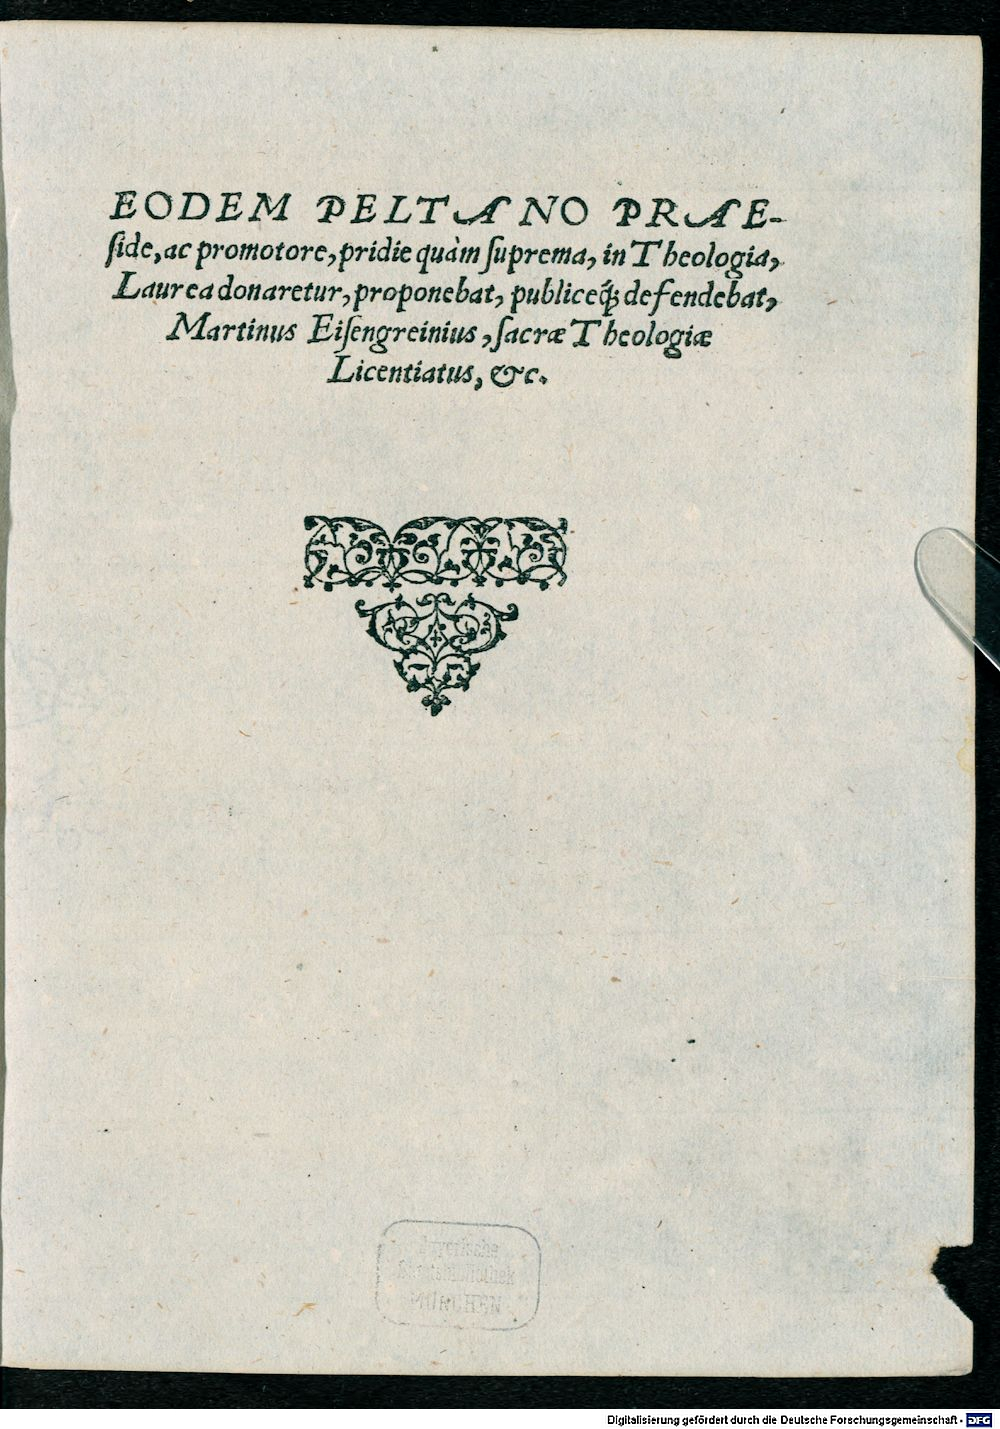 EODEM PELTANO PRAE-
ſide, ac promotore, pridie quàm ſuprema, in Theologia,
Laurea donaretur, proponebat, publiceq́; defendebat,
Martinus Eiſengreinius, ſacræ Theologiæ
Licentiatus, &c.
Bayerische
Staatsbibliothek
MÜNCHEN
Digitalisierung gefördert durch die Deutsche Forschungsgemeinschaft - DFG